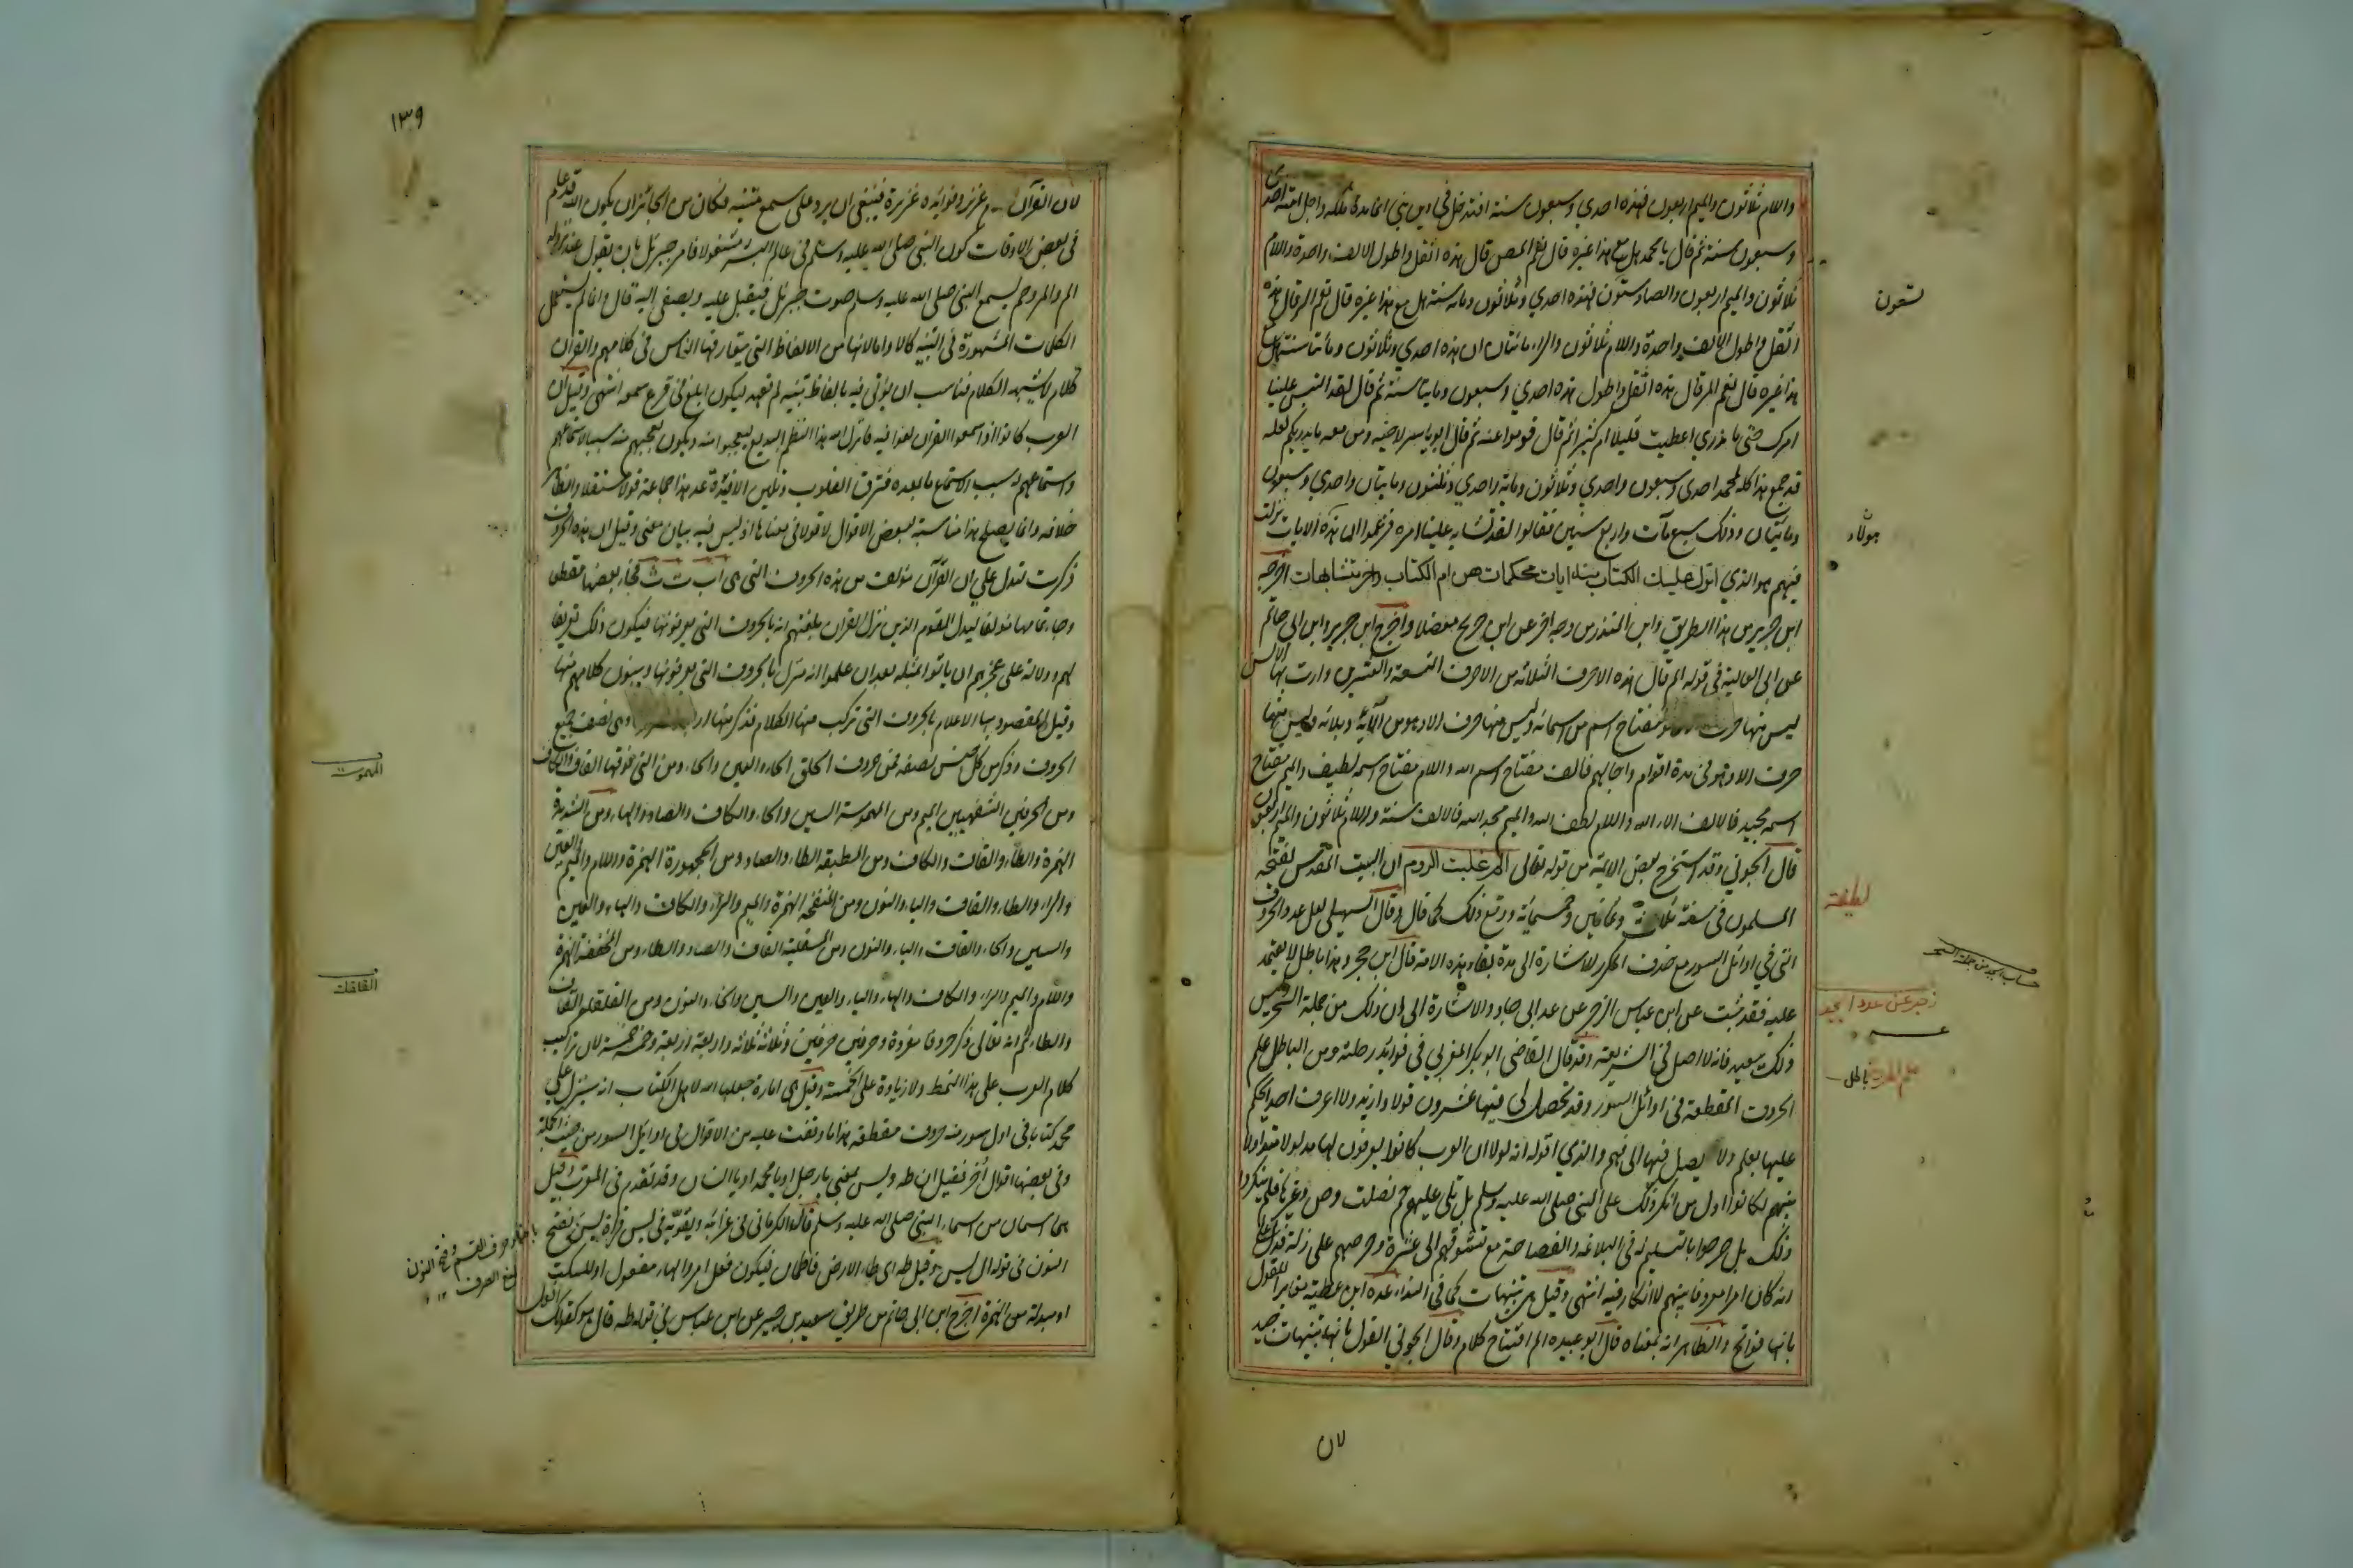 واللام ثلاثون والميم اربعون فهذه احدي وسبعون سنة افتدخل في دين نبي انما مدة ملكه واجل امته احدى
وسبعون سنة ثم قال يا محمد هل مع هذا غيره قال نعم المص قال هذه اثقل واطول الالف واحدة واللام
ثلاثون والميم اربعون والصاد ستون فهذه احدي وثلاثون ومايه سنة هل مع هذا غيره قال نعم الر قال هذه
اثقل واطول الالف واحدة واللام ثلاثون والراء مائتان ان هذه احدي وثلاثون ومائتا سنة هل مع
هذا غيره قال نعم المر قال هذه اثقل واطول هذه احدي وسبعون ومايتا سنة ثم قال لقد التبس علينا
امرك حتى ما ندري اعطيت قليلا ام كثيرا ثم قال قوموا عنه ثم قال ابو ياسر لاخيه ومن معه ما يدريكم لعله
قد جمع هذا كله لمحمد احدي وسبعون واحدي وثلاثون وماية واحدي وثلثون ومايتان واحدي وسبعون
ومائتان وذلك سبع مآت واربع سنين فقالوا لقد تشابه علينا امره فزعموا ان هذه الايات نزلت
فيهم هو الذي انزل عليك الكتاب منه ايات محكمات هن ام الكتاب واخر متشابهات اخرجه
ابن جرير من هذا الطريق وابن المنذر من وجه اخر عن ابن جريج معضلا واخرج ابن جرير وابن ابي حاتم
عن ابي العالية في قوله الم قال هذه الاحرف الثلاثه من الاحرف التسعة والعشرين دارت بها الالسن
ليس منها حرف مفتاح اسم من اسمائه وليس منها حرف الا وهو من آلائه وبلائه وليس منها
حرف الا وهو في مدة اقوام واجالهم فالف مفتاح اسم الله واللام مفتاح اسمه لطيف والميم مفتاح
اسمه مجيد فالالف الاء الله واللام لطف الله والميم مجد الله فالالف سنة واللام ثلاثون والميم اربعون
قال الجوني وقد استخرج بعض الايمة من قوله تعالى الم غلبت الروم ان البيت المقدس يفتحه
المسلمون في سنة ثلاث وثمانين وخمسمائة ووقع ذلك كما قال وقال السهيلي لعل عدد الحروف
التي في اوائل السور مع حذف المكرر للاشارة الى مدة بقاء هذه الامة قال ابن حجر وهذا باطل لا يعتمد
عليه فقد ثبت عن ابن عباس الزجر عن عد ابي جاد والاشارة الى ان ذلك من جملة السحر وليس
ذلك ببعيد فانه لا اصل له في الشريعة وقد قال القاضي ابو بكر المغربي في فوائد رحلته ومن الباطل علم
الحروف المقطعة في اوائل السور وقد تحصل لي فيها عشرون قولا وازيد ولا اعرف احدا يحكم
عليها بعلم ولا يصل فيها الى فهم والذي اقوله انه لولا ان العرب كانوا يعرفون لها مدلولا متداولا
بينهم لكانوا اول من انكر ذلك على النبي صلى الله عليه وسلم بل تلي عليهم حم فصلت وص وغيرها فلم ينكروا
ذلك بل صرحوا بالتسليم له في البلاغة والفصاحة مع تشوقهم الى عثرة وحرصهم على زلة فدل على
انه كان امرا معروفا بينهم لا انكار فيه انتهى وقيل هي تنبيهات كما في النداء عده ابن عطية مغايرا للقول
بانها فواتح والظاهر انه بمعناه قال ابو عبيده الم افتتاح كلام وقال الجوني القول بانها تنبيهات جيد
لان
تسعون
هؤلاء
لطيفة
حساب الجمل من جملة السحر
زجر عن عدد ابجد
علم الحروف باطل
١٣٩
لان القرآن عزيز وفوايده غزيرة فينبغي ان يرد على سمع متنبه فكان من الجائز ان يكون الله قد علم
في بعض الاوقات كون النبي صلى الله عليه وسلم في عالم البشر مشغولا فامر جبرئل بان يقول عند نزوله
الم والر وحم ليسمع النبي صلى الله عليه وسلم صوت جبرئل فيقبل عليه ويصغي اليه قال وانما لم يستعمل
الكلمات المشهورة في التنبيه كالا واما لانها من الالفاظ التي يتعارفها الناس في كلامهم والقرآن
كلام لا يشبه الكلام فناسب ان يؤتى فيه بالفاظ تنبيه لم تعهد ليكون ابلغ في قرع سمعه انتهى وقيل ان
العرب كانوا اذا سمعوا القرآن لغوا فيه فانزل الله هذا النظم البديع ليعجبوا منه ويكون تعجبهم منه سببا لاستماعهم
واستماعهم له سبب لاستماع ما بعده فترق القلوب وتلين الافئدة عد هذا جماعة قولا مستقلا والظاهر
خلافه وانما يصلح هذا مناسبة لبعض الاقوال لا قولا في معناها اذ ليس فيه بيان معنى وقيل ان هذه الحروف
ذكرت لتدل على ان القرآن مؤلف من هذه الحروف التي هي اب ت ث فجاء بعضها مقطعا
وجاء تمامها مؤلفا ليدل القوم الذين نزل القران بلغتهم انه بالحروف التي يعرفونها فيكون ذلك تعريفا
لهم ودلالة على عجزهم ان ياتوا بمثله بعد ان علموا انه منزل بالحروف التي يعرفونها ويبنون كلامهم منها
وقيل المقصود بها الاعلام بالحروف التي تركب منها الكلام فذكر منها وهي نصف جميع
الحروف وذكر من كل جنس نصفه فمن حروف الحلق الحاء والعين والهاء ومن التي فوقها القاف والكاف
ومن الحرفين الشفهيين الميم ومن المهموسة السين والحاء والكاف والصاد والهاء ومن الشديدة
الهمزة والطاء والقاف والكاف ومن المطبقة الطاء والصاد ومن المجهورة الهمزة واللام والميم والعين
والراء والطاء والقاف والياء والنون ومن المنفتحة الهمزة والميم والراء والكاف والهاء والعين
والسين والحاء والقاف والياء والنون ومن المستعلية القاف والصاد والطاء ومن المنخفضة الهمزة
واللام والميم والراء والكاف والهاء والياء والعين والسين والحاء والنون ومن القلقلة القاف
والطاء ثم انه تعالى ذكر حروفا مفردة وحرفين حرفين وثلاثة ثلاثه واربعة اربعة وخمسة خمسة لان تراكيب
كلام العرب على هذا النمط ولا زيادة على الخمسة وقيل هي امارة جعلها الله لاهل الكتاب انه سينزل على
محمد كتابا في اول سور منه حروف مقطعة هذا ما وقفت عليه من الاقوال في اوائل السور من حيث الجملة
وفي بعضها اقوال اخر فقيل ان طه ويس بمعنى يا رجل او يا محمد او يا انسان وقد تقدم في المعرب وقيل
هما اسمان من اسماء النبي صلى الله عليه وسلم قاله الكرماني في غرائبه ويقويه في يس قراة يسن بفتح
النون في قوله ال يس وقيل طه اي طاء الارض فاطمان فيكون فعل امر والهاء مفعول او للسكت
او مبدلة من الهمزة اخرج ابن ابي حاتم من طريق سعيد بن جبير عن ابن عباس في قوله طه قال هو كقولك
المهموسة
القلقلة